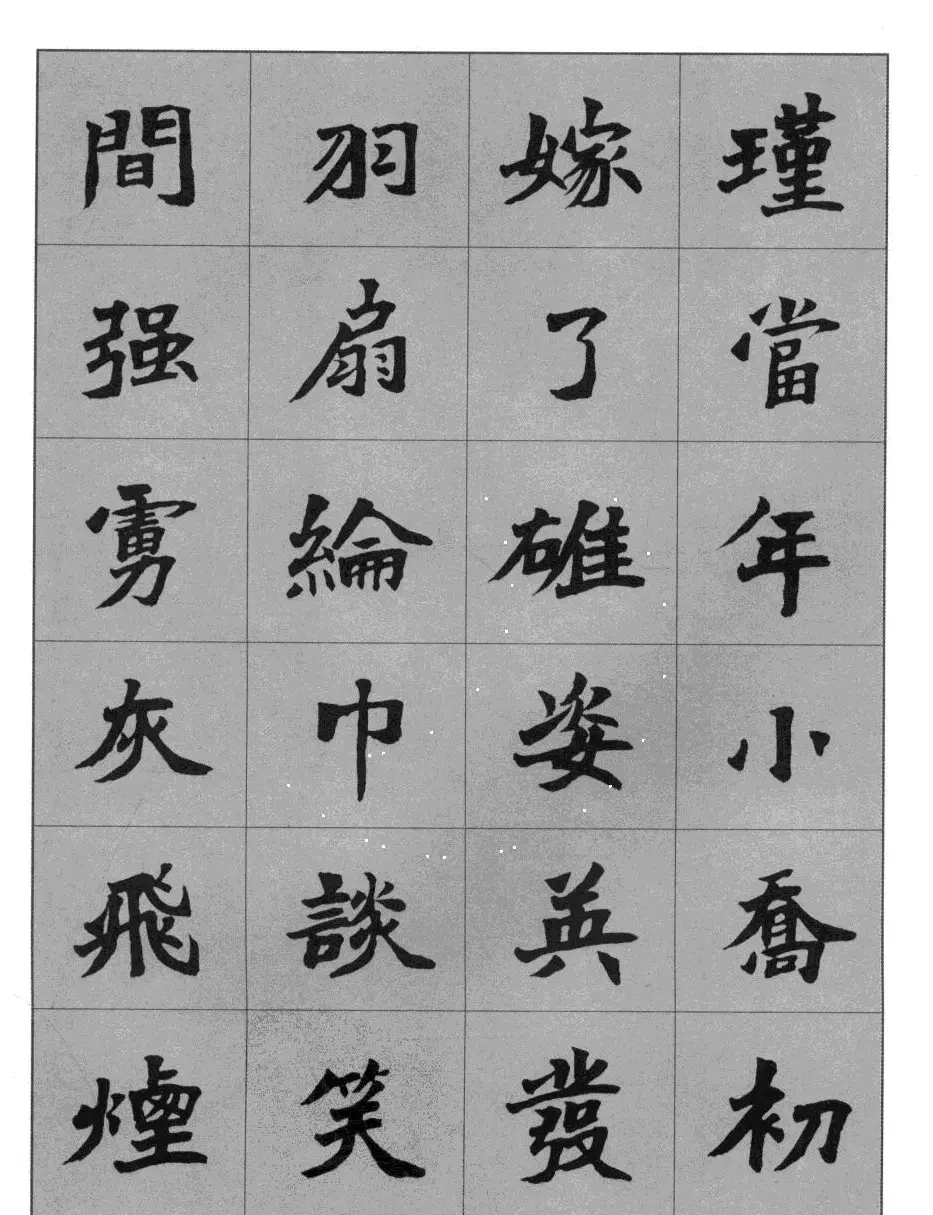 瑾當年小喬初
嫁了碓姿英發
羽扇綸巾談笑
間强虜灰飛煙